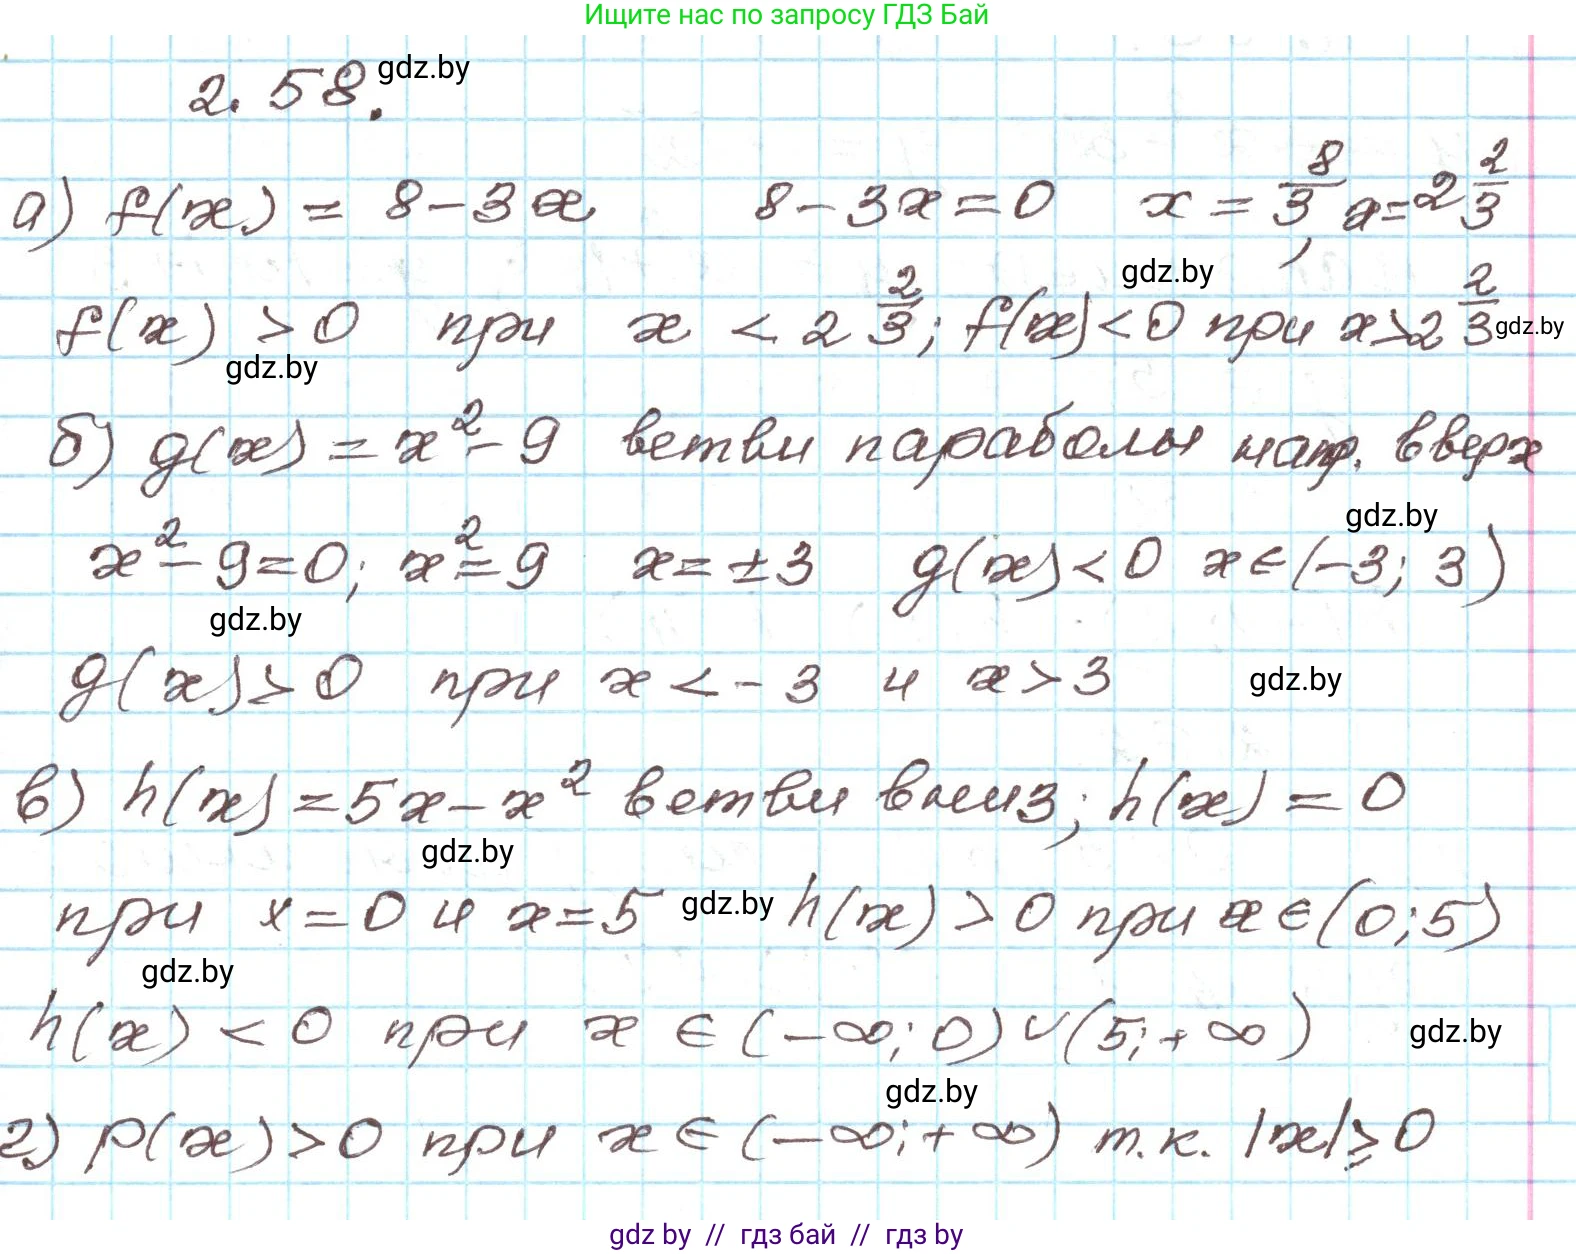 Ищите нас по запросу ГДЗ Бай
2.58. gdz.by
а) f(x) = 8 - 3x   8 - 3x = 0   x = 8/3, x = 2 2/3
gdz.by
f(x) > 0 при x < 2 2/3; f(x) < 0 при x > 2 2/3 gdz.by
gdz.by
б) g(x) = x² - 9 ветви параболы напр. вверх
gdz.by
x² - 9 = 0; x² = 9   x = ±3   g(x) < 0 x ∈ (-3; 3)
gdz.by
g(x) > 0 при x < -3 и x > 3 gdz.by
в) h(x) = 5x - x² ветви вниз; h(x) = 0
gdz.by
при x = 0 и x = 5 gdz.by h(x) > 0 при x ∈ (0; 5)
gdz.by
h(x) < 0 при x ∈ (-∞; 0) ∪ (5; +∞) gdz.by
gdz.by
г) p(x) > 0 при x ∈ (-∞; +∞) т.к. |x| ≥ 0
gdz by // гдз бай // гдз by